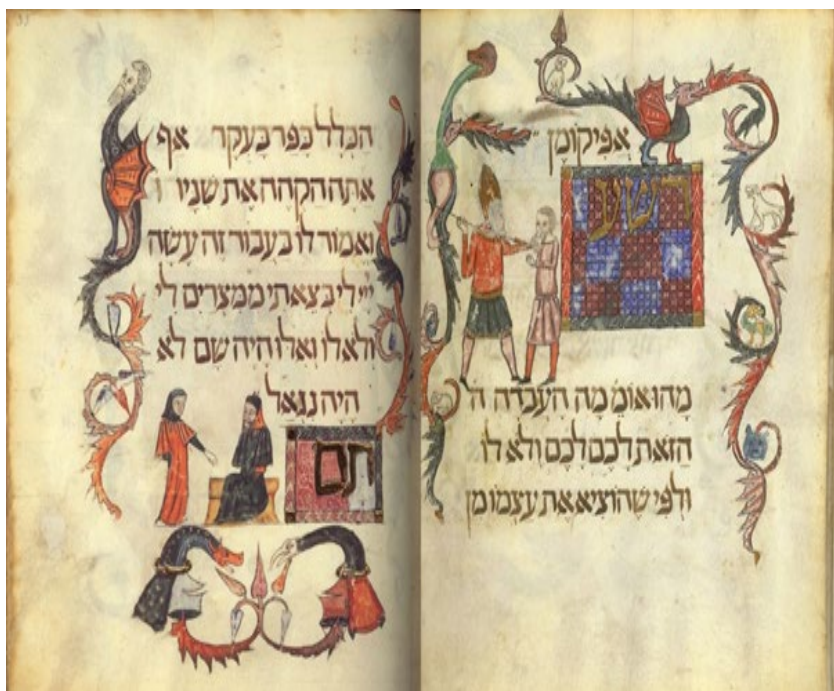 אפיקומן
רשע
מהו אומ מה העבדה ה
הזאת לכם לכם ולא לו
ולפי שהוציא את עצמו מן
הכלל כפר בעקר אף
אתה הקהה את שניו ו
ואמור לו בעבור זה עשה
ייי לי בצאתי ממצרים לי
ולא לו ואלו היה שם לא
היה נגאל
תם